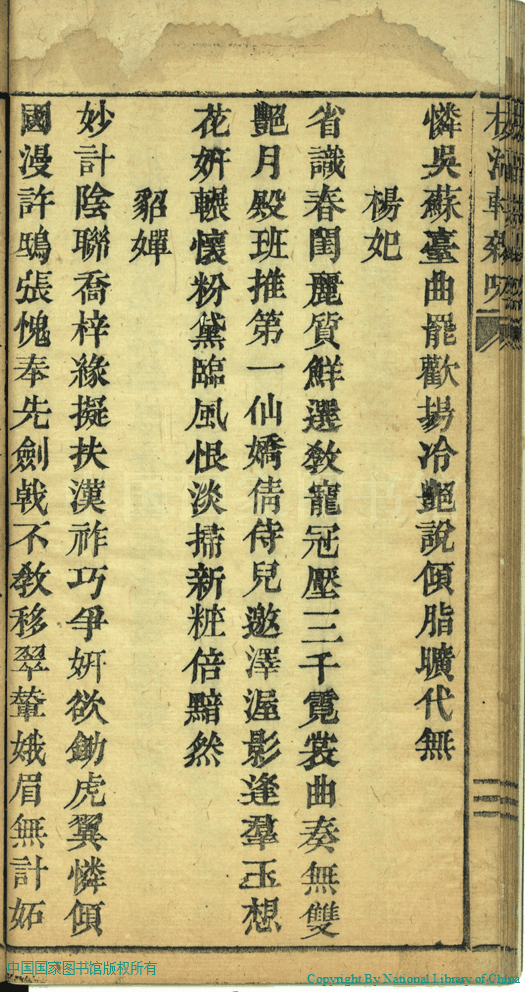 憐吳蘇臺曲罷歡場冷艷說傾脂曠代無
楊妃
省識春閨麗質鮮選敎寵冠壓三千霓裳曲奏無雙
艷月殿班推第一仙嬌倩侍兒邀澤渥影逢羣玉想
花妍輾懷粉黛臨風恨淡掃新粧倍黯然
貂嬋
妙計陰聯喬梓緣擬扶漢祚巧爭妍欲鋤虎翼憐傾
國漫許鴟張愧奉先劍戟不敎移翠輦娥眉無計妬
中国国家图书馆版权所有
Copyright By National Library of China